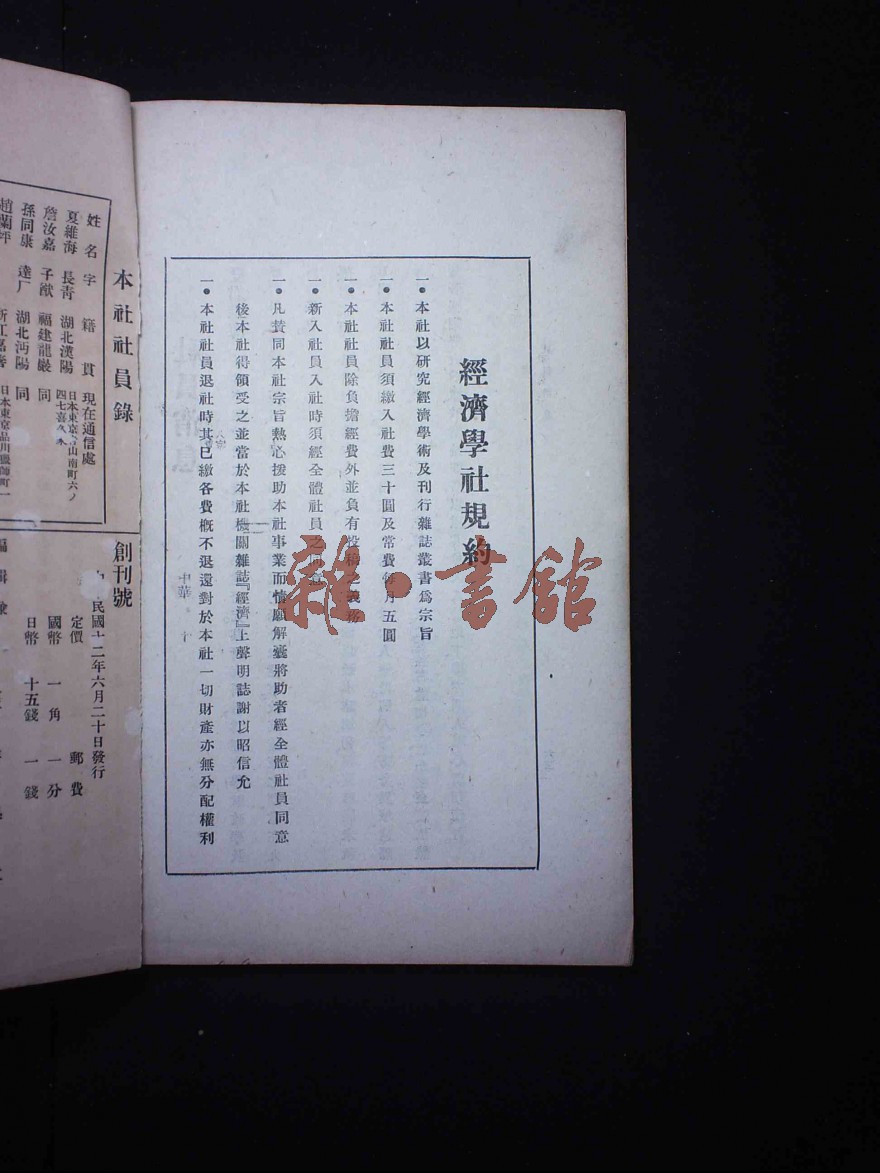 經濟學社規約
一●本社以研究經濟學術及刊行雜誌叢書爲宗旨
一●本社社員須繳入社費三十圓及常費每月五圓
一●本社社員除負擔經費外並負有投稿之義務
一●新入社員入社時須經全體社員之同意
一●凡賛同本社宗旨熱心援助本社事業而情願解囊將助者經全體社員同意
後本社得領受之並當於本社機關雜誌『經濟』上聲明誌謝以昭信允
一●本社社員退社時其已繳各費概不退還對於本社一切財產亦無分配權利
雜·書館
本社社員錄
姓名 字 籍貫 現在通信處
夏維海 長靑 湖北漢陽 日本東京 山南町六ノ
四七喜久
詹汝嘉 子猷 福建龍巖 同
孫同康 達厂 湖北沔陽 同
趙蘭坪 浙江嘉善 日本東京品川獵師町一
創刊號
民國十二年六月二十日發行
定價 郵費
國幣 一角 一分
日幣 十五錢 一錢
編輯